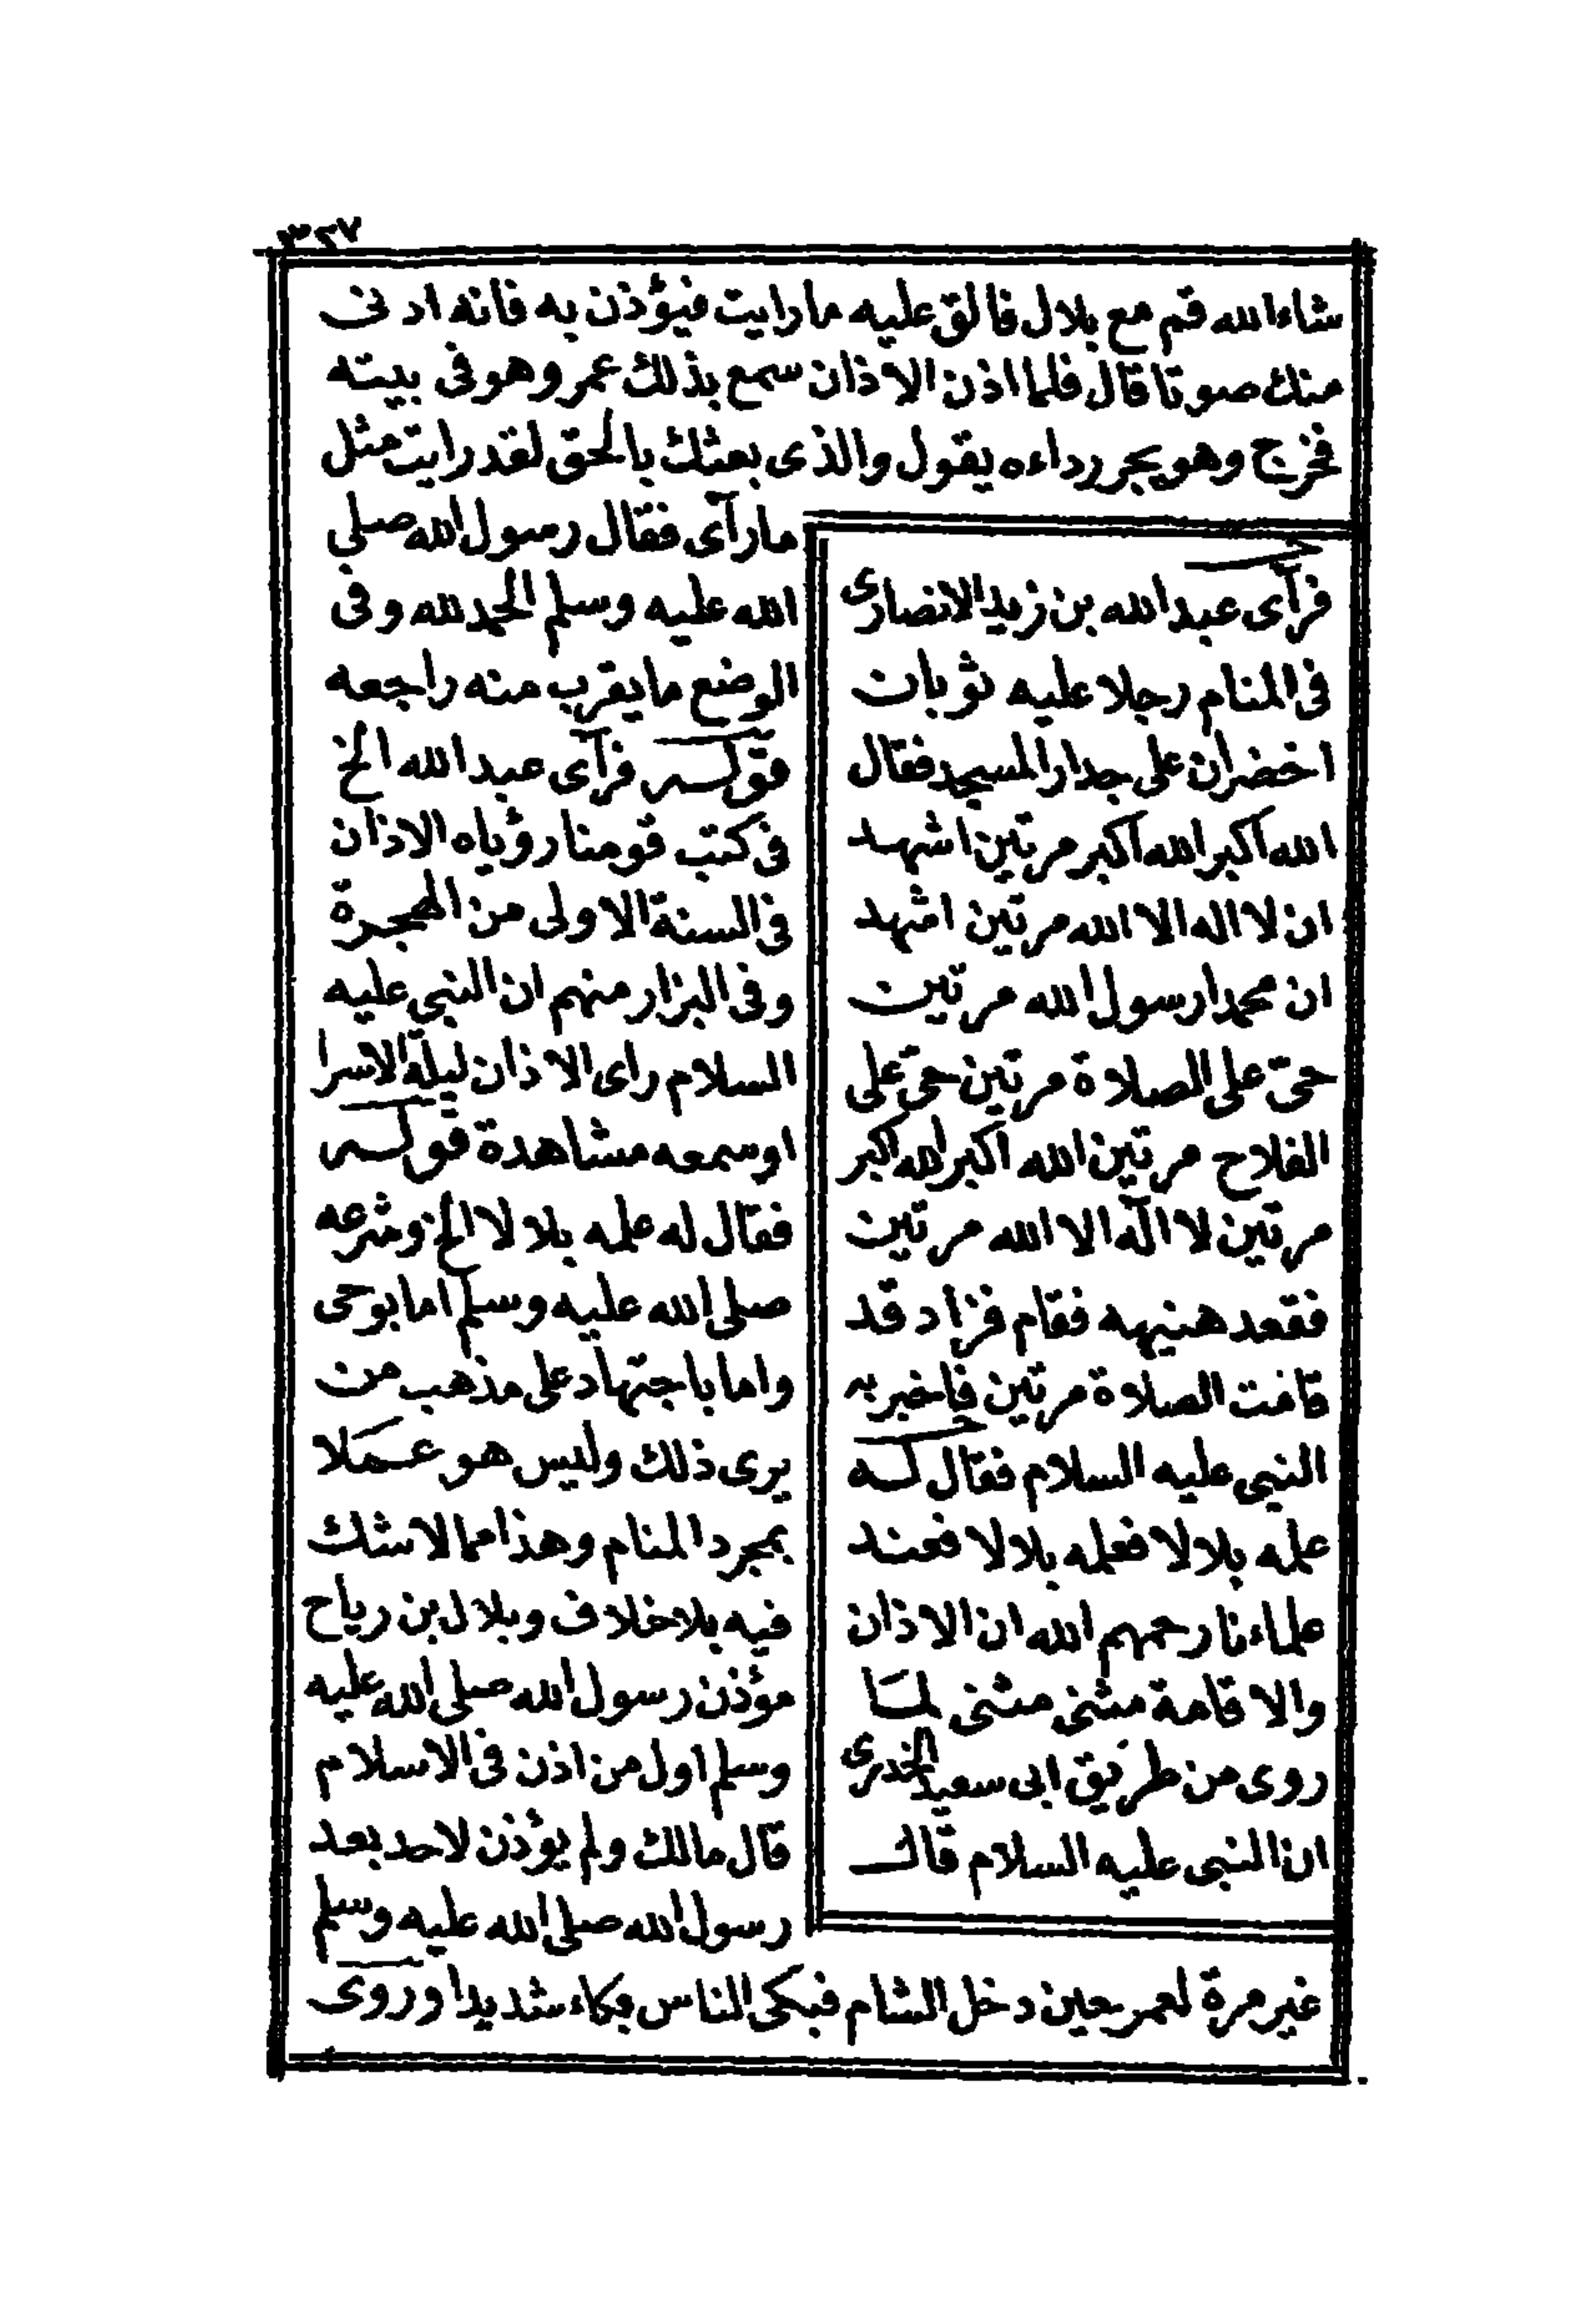 ٣٢٧
شاء الله قم مع بلال فالق عليه ما رايت فيؤذن به فانه اندى
منك صوتا قال فلما اذن الاذان سمع بذلك عمر وهو فى بيته
فخرج وهو يجر رداءه يقول والذى بعثك بالحق لقد رايت مثل
ما رآى فقال رسول الله صلى
الله عليه وسلم الحمد لله وفى
الوضع ما يقرب منه راجعه
قوله فرآى عبد الله الخ
فى كتب قومنا رؤياه الاذان
فى السنة الاولى من الهجرة
وفى البزار منهم ان النبى عليه
السلام راى الاذان ليلة الاسرا
او سمعه مشاهدة قوله
فقال له علمه بلالا الخ وشرعه
صلى الله عليه وسلم اما بوحى
واما باجتهاد على مذهب من
يرى ذلك وليس هو عملا
بمجرد المنام وهذا مما لا شك
فيه بلا خلاف وبلال بن رباح
مؤذن رسول الله صلى الله عليه
وسلم اول من اذن فى الاسلام
قال مالك ولم يؤذن لاحد بعد
رسول الله صلى الله عليه وسلم
غير مرة لعمر حين دخل الشام فبكى الناس بكاء شديدا وروى
فرآى عبد الله بن زيد الانصارى
فى المنام رجلا عليه ثوبان
اخضران على جدار المسجد فقال
الله اكبر الله اكبر مرتين اشهد
ان لا اله الا الله مرتين اشهد
ان محمدا رسول الله مرتين
حى على الصلاة مرتين حى على
الفلاح مرتين الله اكبر الله اكبر
مرتين لا اله الا الله مرتين
فقعد هنيهه فقام فزاد قد
قامت الصلاة مرتين فاخبر به
النبى عليه السلام فقال له
علمه بلالا فعلمه بلالا فعند
علماءنا رحمهم الله ان الاذان
والاقامة مثنى مثنى لما
روى من طريق ابى سعيد الخدرى
ان النبى عليه السلام قال